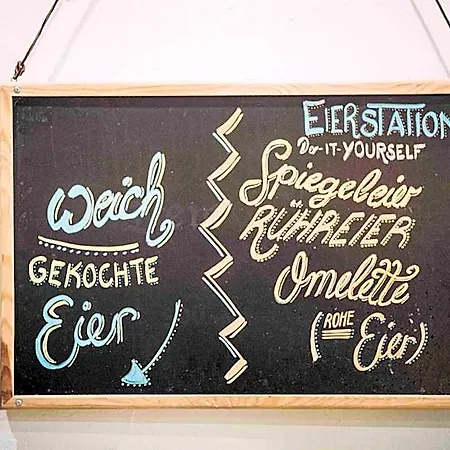 Weich
GEKOCHTE
Eier
EIERSTATION
Do-IT-YOURSELF
Spiegeleier
RÜHREIER
Omelette
(ROHE Eier)